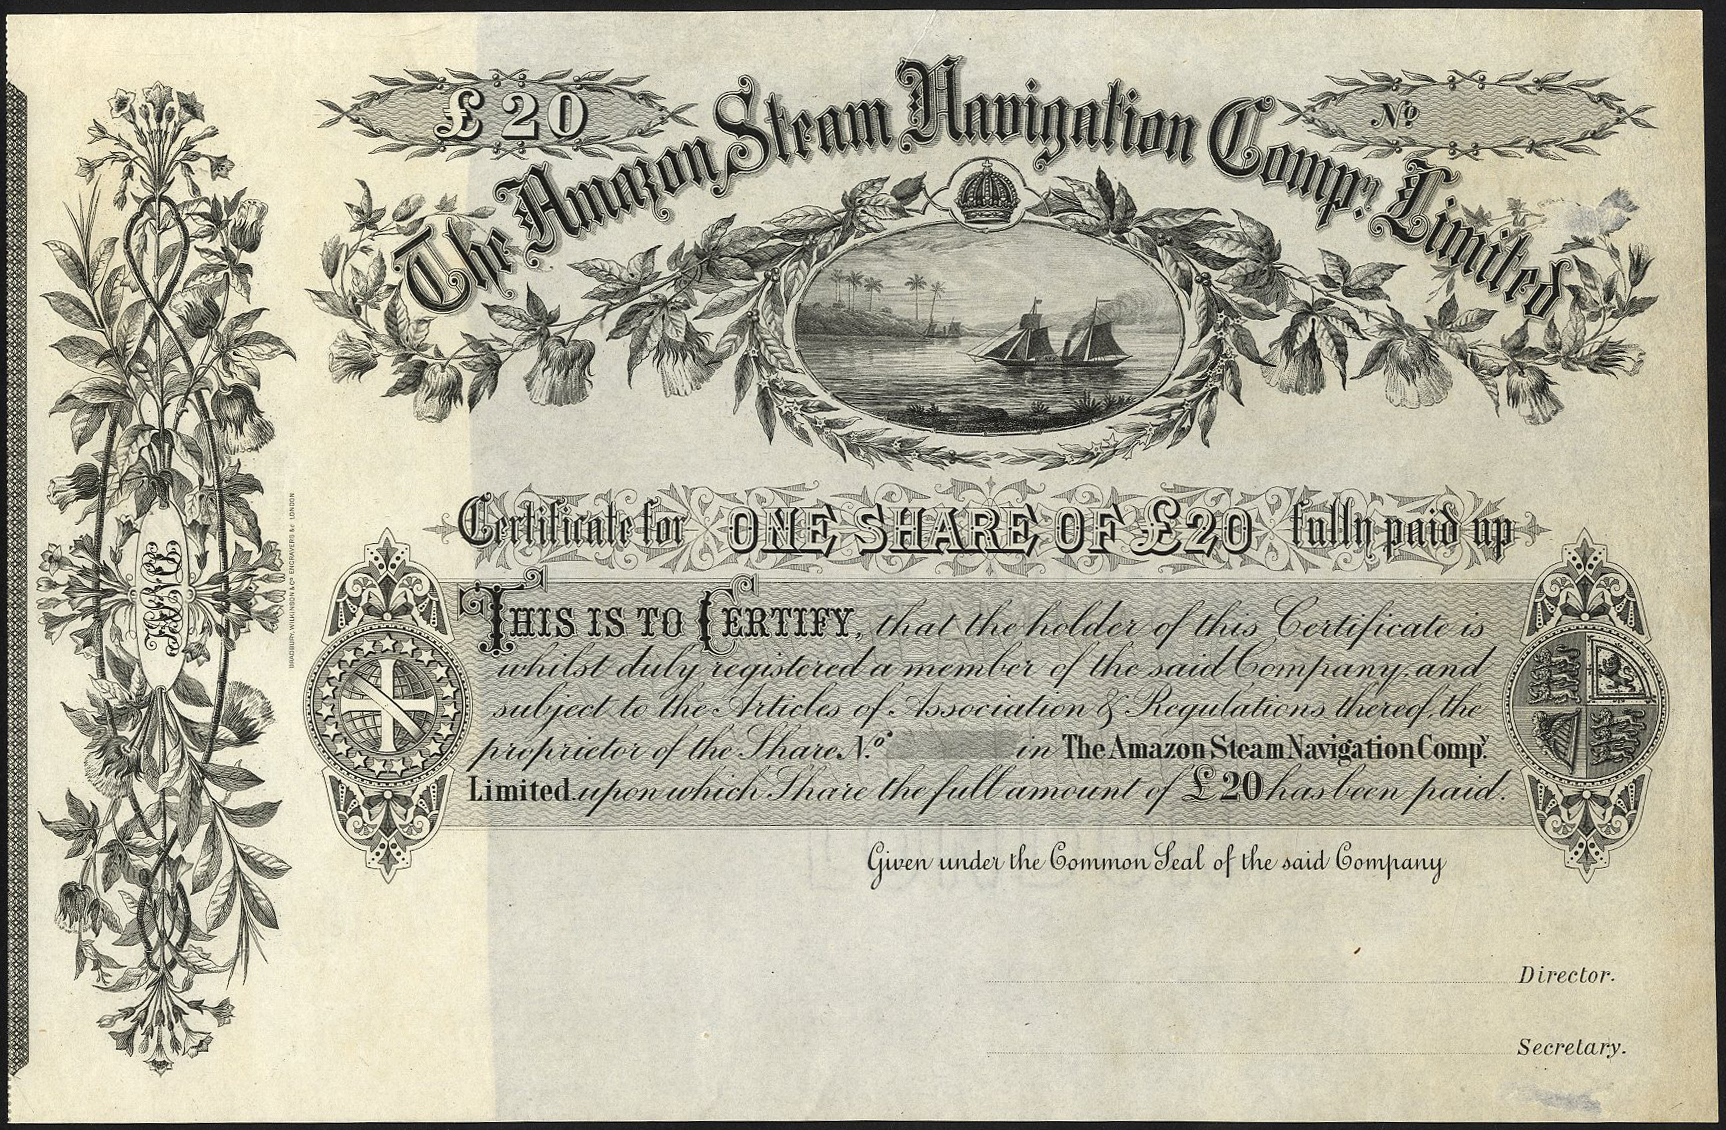 £20
Nº
The Amazon Steam Navigation Compy. Limited
Certificate for ONE SHARE OF £20 fully paid up
THIS IS TO CERTIFY, that the holder of this Certificate is
whilst duly registered a member of the said Company, and
subject to the Articles of Association & Regulations thereof, the
proprietor of the Share Nº in The Amazon Steam Navigation Compy.
Limited. upon which Share the full amount of £20 has been paid.
Given under the Common Seal of the said Company
Director.
Secretary.
BRADBURY, WILKINSON & Co. ENGRAVERS &c. LONDON